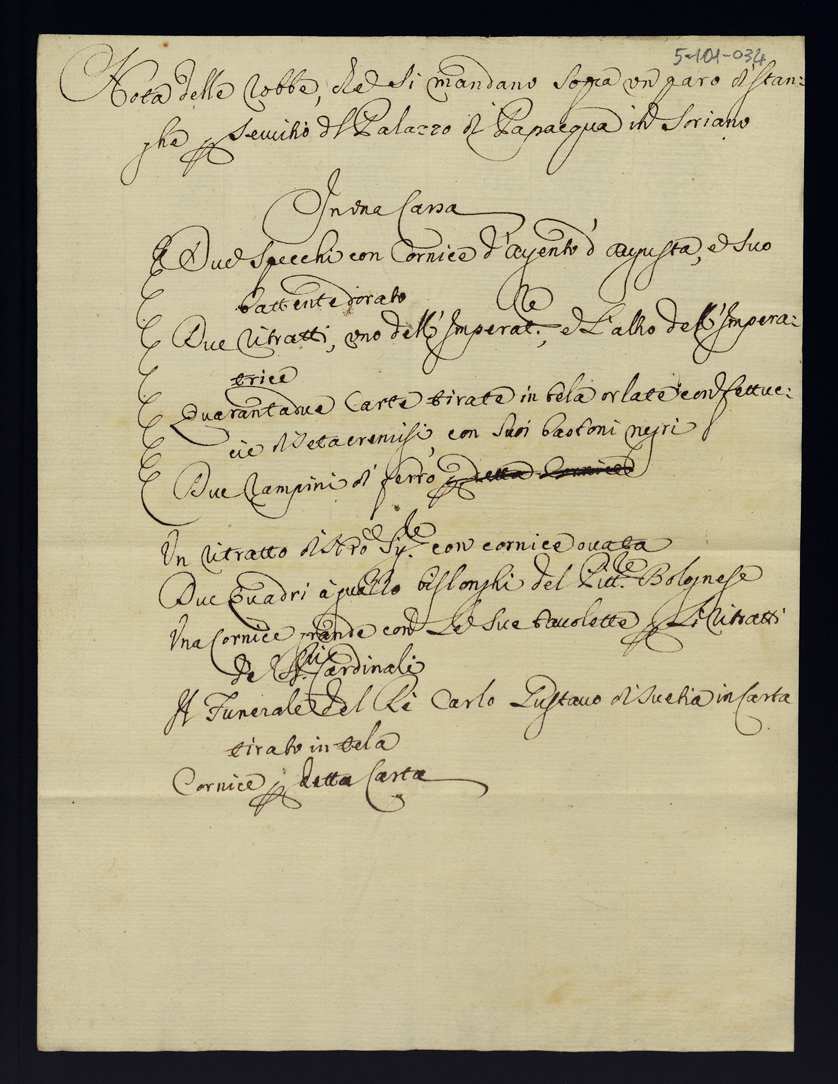 5-101-034
Nota delle robbe, che si mandano sopra un paro di stan:
ghe p servitio del Palazzo di Papacqua in Soriano
In una Cassa
Due specchi con Cornice d'argento d'Augusta, e suo
battente dorato
Due ritratti, uno dell'Imperat.re, e l'altro dell'Impera:
trice
Quarantadue Carte tirate in tela orlate con fettuc:
cie di seta cremisi con suoi bastoni negri
Due rampini di ferro p detta Cornice
Un ritratto di Nro Sig.re con cornice ovata
Due quadri à guazzo bislonghi del Pitt.re Bolognese
Una Cornice grande con le sue tavolette p li ritratti
de Sri. Cardinali
Il Funerale del Rè Carlo Gustavo di Svetia in Carta
tirato in tela
Cornice p detta Carta